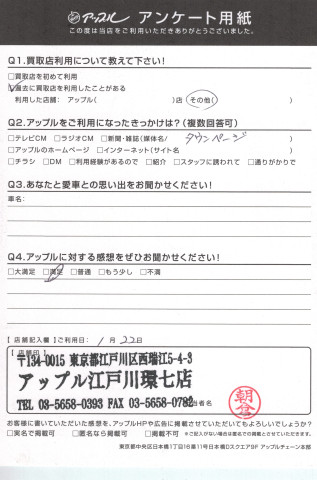 アップル アンケート用紙
この度は当店をご利用いただきありがとうございました。
Q1.買取店利用について教えて下さい!
□買取店を初めて利用
□過去に買取店を利用したことがある
利用した店舗: アップル( )店 その他( )
Q2.アップルをご利用になったきっかけは?(複数回答可)
□テレビCM □ラジオCM □新聞・雑誌(媒体名/ タウンページ )
□アップルのホームページ □インターネット(サイト名 )
□チラシ □DM □利用経験があるので □紹介 □スタッフに誘われて □通りがかりで
Q3.あなたと愛車との思い出をお聞かせください!
車名:
Q4.アップルに対する感想をぜひお聞かせください!
□大満足 □満足 □普通 □もう少し □不満
【店舗記入欄】ご利用日: 1月22日
【店舗印】
〒134-0015 東京都江戸川区西瑞江5-4-3
アップル江戸川環七店
TEL 03-5658-0393 FAX 03-5658-0782
当者名
朝倉
お客様に書いていただいた感想を、アップルHPや広告に掲載させていただいてもよろしいでしょうか?
□実名で掲載可 □匿名なら掲載可 □掲載不可 ※ご記入がない場合は匿名での掲載とさせていただきます。
東京都中央区日本橋1丁目16番11号日本橋Dスクエア9F アップルチェーン本部